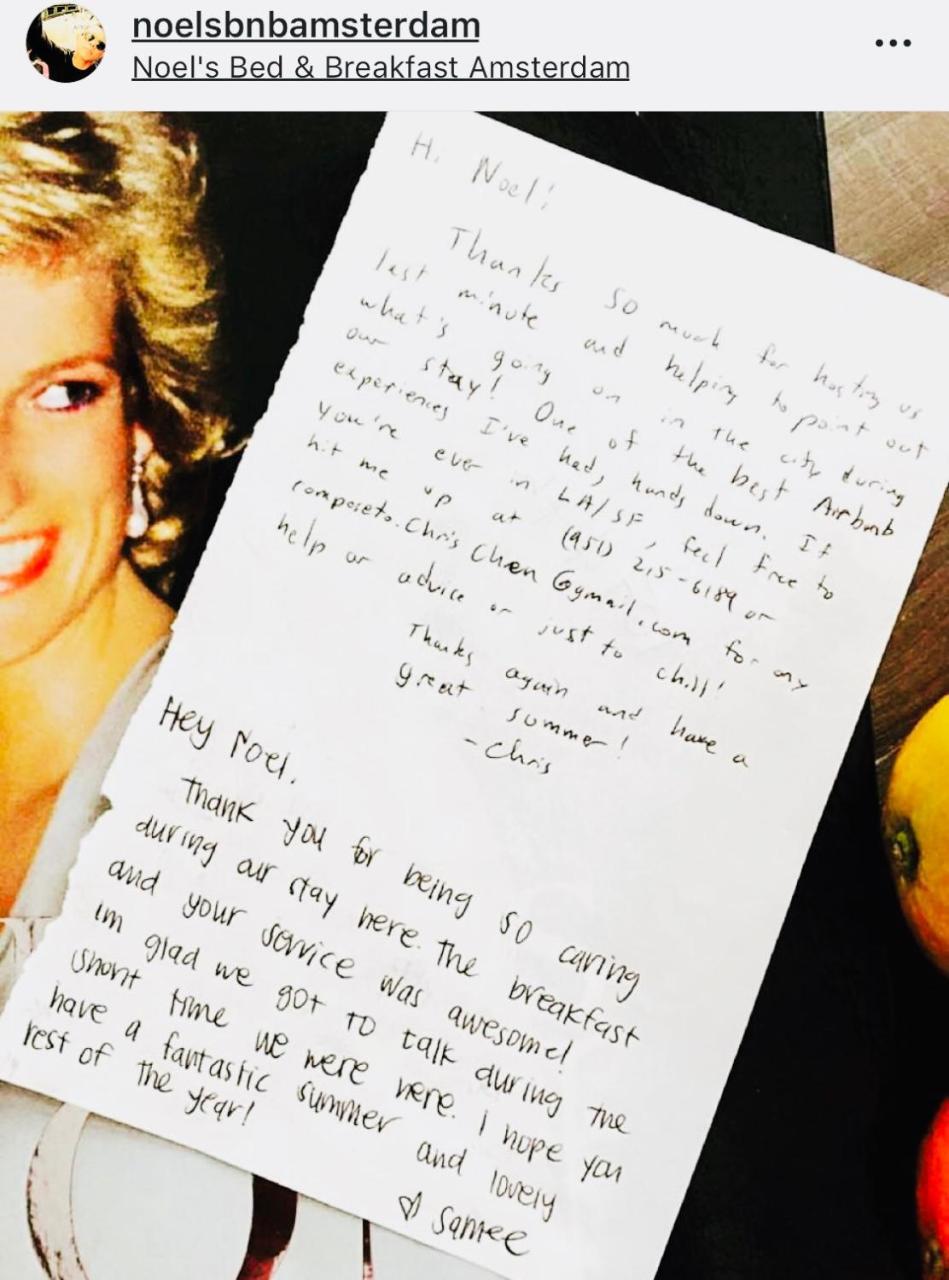 noelsbnbamsterdam
Noel's Bed & Breakfast Amsterdam
Hi Noel!
Thanks so much for hosting us
last minute and helping to point out
what's going on in the city during
our stay! One of the best Airbnb
experiences I've had, hands down. If
you're ever in LA/SF, feel free to
hit me up at (951) 215-6189 or
composeto.ChrisChen@gmail.com for any
help or advice or just to chill!
Thanks again and have a
great summer!
-Chris
Hey Noel,
Thank you for being so caring
during our stay here. The breakfast
and your service was awesome!
Im glad we got to talk during the
short time we were here. I hope you
have a fantastic summer and lovely
rest of the year!